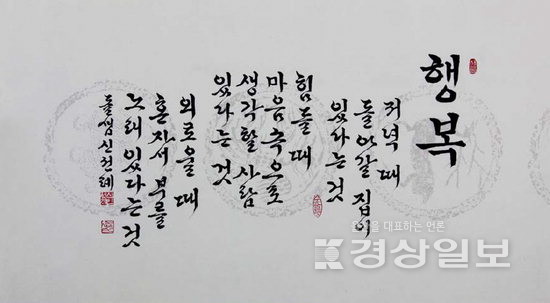 행복
저녁 때
돌아갈 집이
있다는 것
힘들 때
마음 속으로
생각할 사람
있다는 것
외로울 때
혼자서 부를
노래 있다는 것
돌샘 신전례
을 대표하는 언론
경상일보